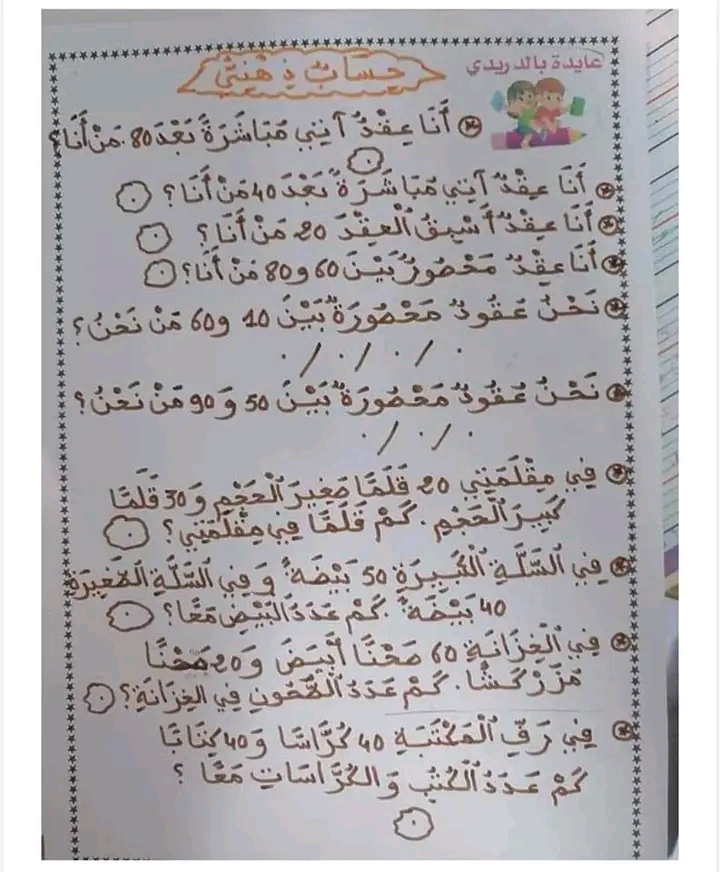 عايدة بالدريدي
حِسَابٌ ذِهْنِيٌّ
أَنَا عِقْدٌ آتِي مُبَاشَرَةً بَعْدَ 80. مَنْ أَنَا؟
أَنَا عِقْدٌ آتِي مُبَاشَرَةً بَعْدَ 40 مَنْ أَنَا؟
أَنَا عِقْدٌ أَسْبِقُ الْعِقْدَ 20 مَنْ أَنَا؟
أَنَا عِقْدٌ مَحْصُورٌ بَيْنَ 60 و 80 مَنْ أَنَا؟
نَحْنُ عُقُودٌ مَحْصُورَةٌ بَيْنَ 10 و 60 مَنْ نَحْنُ؟
. / . / . / .
نَحْنُ عُقُودٌ مَحْصُورَةٌ بَيْنَ 50 وَ 90 مَنْ نَحْنُ؟
. / . / .
فِي مِقْلَمَتِي 20 قَلَمًا صَغِيرَ الْحَجْمِ وَ 30 قَلَمًا
كَبِيرَ الْحَجْمِ. كَمْ قَلَمًا فِي مِقْلَمَتِي؟
فِي السَّلَّةِ الْكَبِيرَةِ 50 بَيْضَةً وَ فِي السَّلَّةِ الصَّغِيرَةِ
40 بَيْضَةً. كَمْ عَدَدُ الْبَيْضِ مَعًا؟
فِي الْخِزَانَةِ 60 صَحْنًا أَبْيَضَ وَ 20 صَحْنًا
مُزَرْكَشًا. كَمْ عَدَدُ الصُّحُونِ فِي الخِزَانَةِ؟
فِي رَفِّ الْمَكْتَبَةِ 40 كُرَّاسًا وَ 40 كِتَابًا
كَمْ عَدَدُ الْكُتُبِ وَ الكُرَّاسَاتِ مَعًا؟